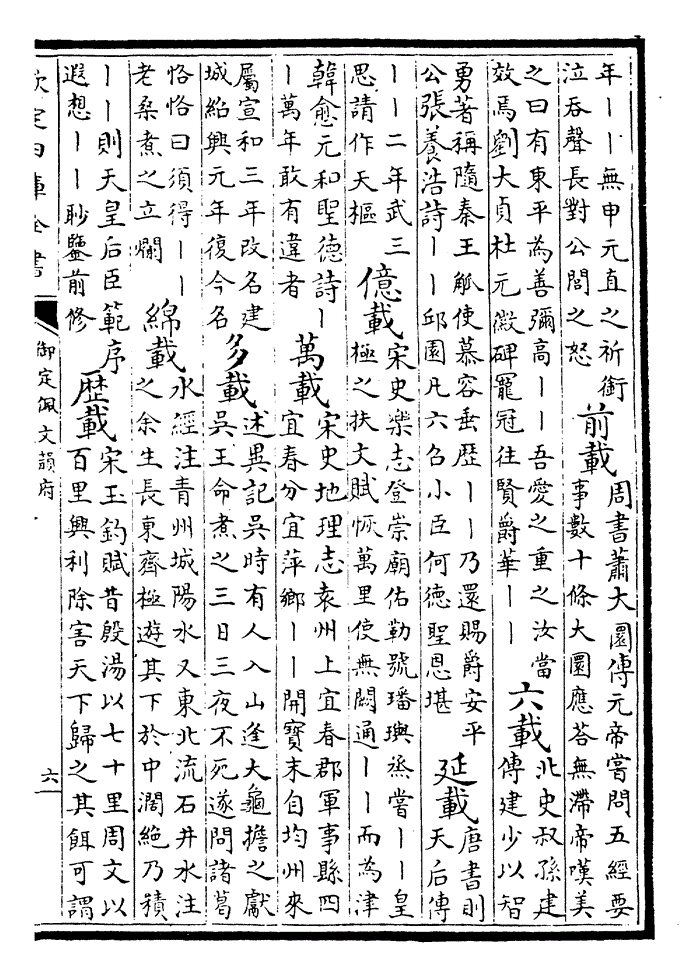 年丨丨無申元直之祈銜
泣吞聲長對公閭之怒
前載
周書蕭大圜傳元帝嘗問五經要
事數十條大圜應答無滯帝嘆美
之曰有東平為善彌高丨丨吾愛之重之汝當
效焉劉大貞杜元徽碑寵冠往賢爵華丨丨
六載
北史叔孫建
傳建少以智
勇著稱隨秦王觚使慕容垂歴丨丨乃還賜爵安平
公張養浩詩丨丨邱園凡六召小臣何徳聖恩堪
延載
唐書則
天后傳
丨丨二年武三
思請作天樞
億載
宋史樂志登崇廟佑勒號璠璵烝嘗丨丨皇
極之扶文賦恢萬里使無閡通丨丨而為津
韓愈元和聖德詩丨
丨萬年敢有違者
萬載
宋史地理志袁州上宜春郡軍事縣四
宜春分宜萍鄉丨丨開寳末自均州來
屬宣和三年改名建
城紹興元年復今名
多載
述異記吳時有人入山逢大龜擔之獻
吳王命煮之三日三夜不死遂問諸葛
恪恪曰須得丨丨
老桑煮之立爛
綿載
水經注青州城陽水又東北流石井水注
之余生長東齊極遊其下於中濶絶乃積
丨丨則天皇后臣範序
遐想丨丨眇鑒前修
歴載
宋玉釣賦昔殷湯以七十里周文以
百里興利除害天下歸之其餌可謂
欽定四庫全書
御定佩文韻府
六